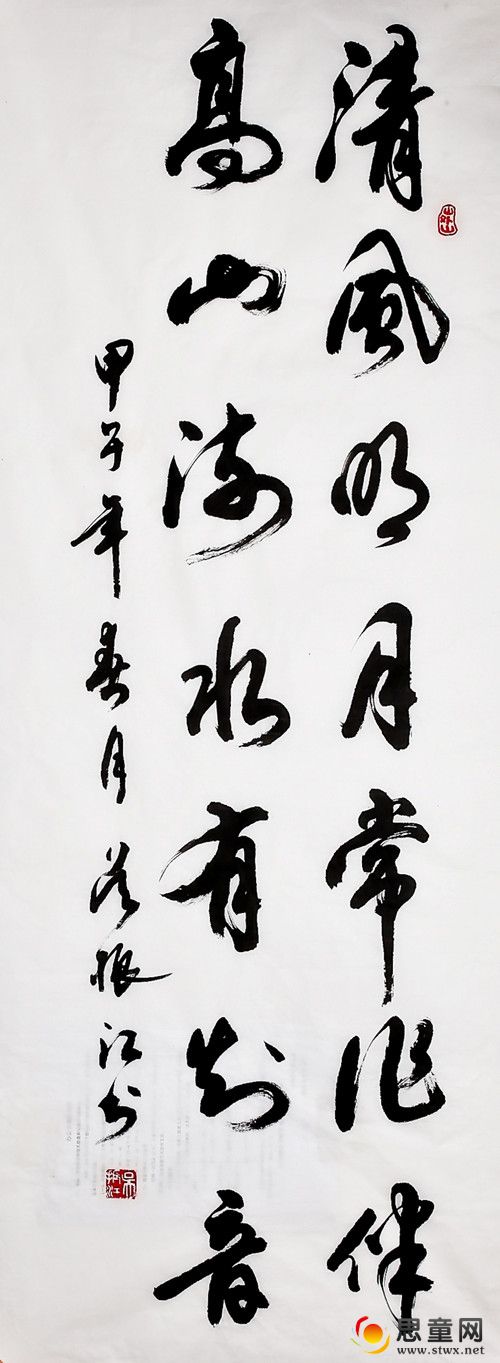 清風明月常作伴
高山流水有知音
甲午年春月吴振江书
思童网
www.stwx.net